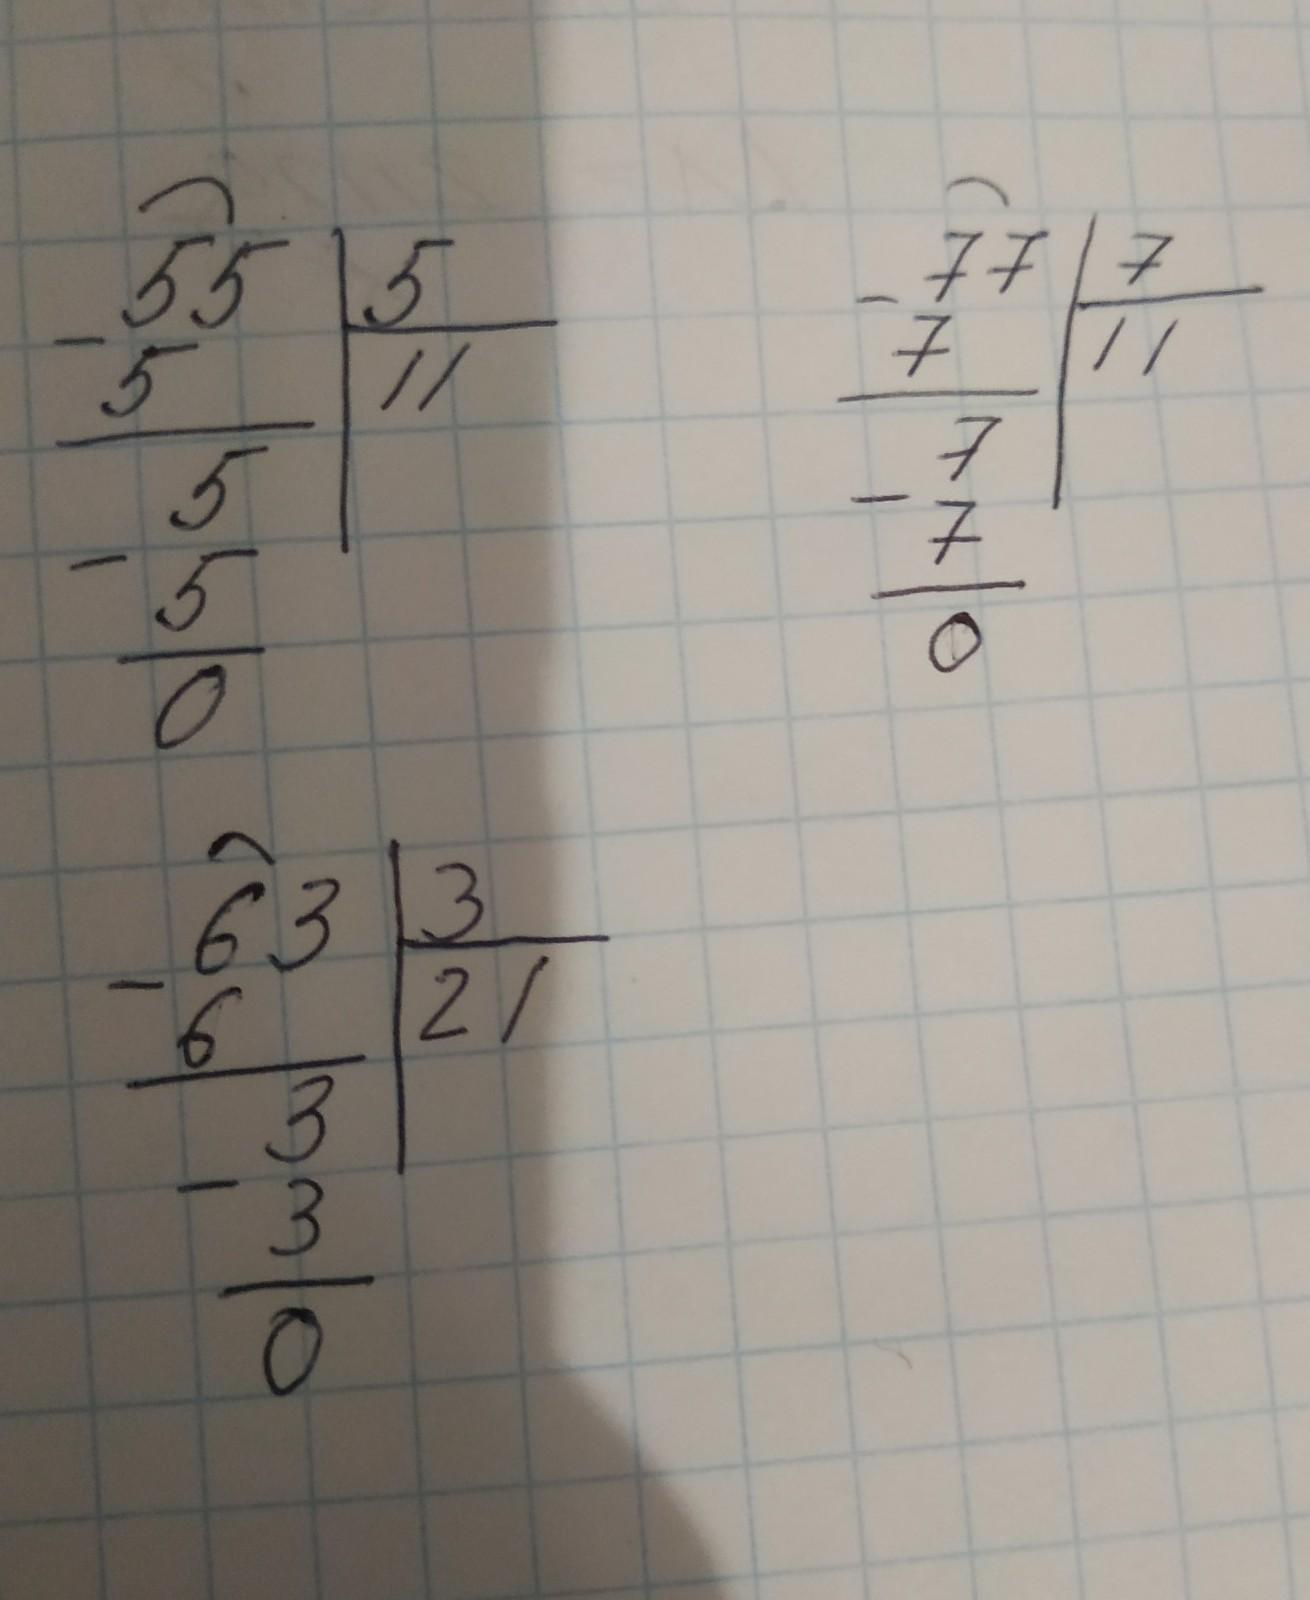 55 | 5
- 5 | 11
5
- 5
0
77 | 7
- 7 | 11
7
- 7
0
63 | 3
- 6 | 21
3
- 3
0